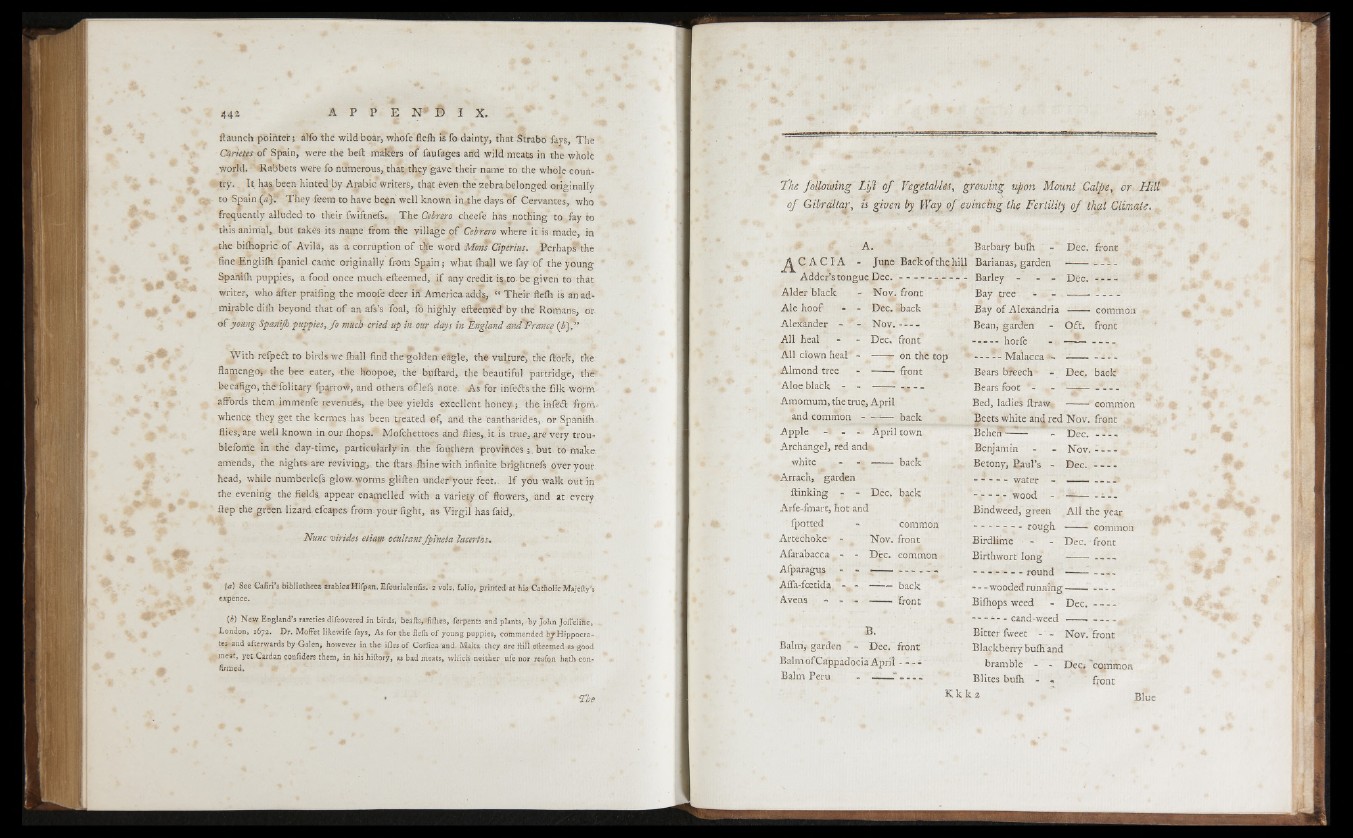 442 A P P E N D I X.
ſtaunch pointer; alſo the wild boar, whoſe fleſh is ſo dainty, that Strabo ſays, The
Cærietes of Spain, were the beſt makers of ſauſages and wild meats in the whole
world. Rabbets were ſo numerous, that they gave their name to the whole coun-
try. It has been hinted by Arabic writers, that even the zebra belonged originally
to Spain (a). They ſeem to have been well known in the days of Cervantes, who
frequently alluded to their ſwiftneſs. The Cebrero cheeſe has nothing to ſay to
this animal, but takes its name from the village of Cebrero where it is made, in
the biſhopric of Avila, as a corruption of the word Mons Ciperius. Perhaps the
fine Engliſh ſpaniel came originally from Spain; what ſhall we ſay of the young
Spaniſh puppies, a food once much eſteemed, if any credit is to be given to that
writer, who after praiſing the mooſe deer in America adds, “ Their fleſh is an ad-
mirable diſh beyond that of an aſs’s foal, ſo highly eſteemed by the Romans, or
of young Spaniſh puppies, ſo much cried up in our days in England and France (b).”
With reſpect to birds we ſhall find the golden eagle, the vulture, the ſtork, the
flamengo, the bee eater, the hoopoe, the buſtard, the beautiful partridge, the
becafigo, the ſolitary ſparrow, and others of leſs note. As for inſects the ſilk worm
affords them immenſe revenues, the bee yields excellent honey; the inſect from
whence they get the kermes has been treated of, and the cantharides, or Spaniſh
flies, are well known in our ſhops. Moſchettoes and flies, it is true, are very trou-
bleſome in the day-time, particularly in the ſouthern provinces; but to make
amends, the nights are reviving, the ſtars ſhine with infinite brightneſs over your
head, while numberleſs glow worms gliſten under your feet. If you walk out in
the evening the fields appear enamelled with a variety of flowers, and at every
ſtep the green lizard eſcapes from your ſight, as Virgil has ſaid,
Nunc virides etiam occultant ſpineta lacertos.
(a) See Caſiri’s bibliotheca arabica Hiſpan. Eſcurialenſis. 2 vols. folio, printed at his Catholic Majeſty’s
expence.
(b) New England’s rareties diſcovered in birds, beaſts, fiſhes, ſerpents and plants, by John Joſſeline,
London, 1672. Dr. Moffet likewiſe ſays, As for the fleſh of young puppies, commended by Hippocra-
tes and afterwards by Galen, however in the iſles of Corſica and Malta they are ſtill eſteemed as good
meat, yet Cardan conſiders them, in his hiſtory, as bad meats, which neither uſe nor reaſon hath con-
firmed.
The
The following Liſt of Vegetables, growing upon Mount Calpe, or Hill
of Gibraltar, is given by Way of evincing the Fertility of that Climate.
A.
ACACIA - June Back of the hill
Adder’s tongue Dec. - - - - - - - - - -
Alder black - Nov. front
Ale hoof - - Dec. back
Alexander - - Nov. - - - -
All heal - - Dec. front
All clown heal - —— on the top
Almond tree - —— front
Aloe black - - —— - - - -
Amomum, the true, April
and common - —— back
Apple - - - April town
Archangel, red and
white - - —— back
Arrach, garden
ſtinking - - Dec. back
Arſe-ſmart, hot and
ſpotted - common
Artechoke - Nov. front
Aſarabacca - - Dec. common
Aſparagus - - —— - - - - - -
Aſſa-fœtida - - —— back
Avens - - - —— front
B.
Balm, garden - Dec. front
Balm of Cappadocia April - - - -
Balm Peru - —— - - - -
Barbary buſh - Dec. front
Barianas, garden —— - - - -
Barley - - - Dec. - - - -
Bay tree - - —— - - - -
Bay of Alexandria —— common
Bean, garden - Oct. front
- - - - - horſe - —— - - - -
- - - - - Malacca - —— - - - -
Bears breech - Dec. back
Bears foot - - —— - - - -
Bed, ladies ſtraw —— common
Beets white and red Nov. front
Behen —— - Dec. - - - -
Benjamin - - Nov. - - - -
Betony, Paul’s - Dec. - - - -
- - - - - water - —— - - - -
- - - - - wood - —— - - - -
Bindweed, green All the year
- - - - - - - rough —— common
Birdlime - - Dec. front
Birthwort long —— - - - -
- - - - - - - round —— - - - -
- - - wooded running —— - - - -
Biſhops weed - Dec. - - - -
- - - - - - cand-weed —— - - - -
Bitter ſweet - - Nov. front
Blackberry buſh and
bramble - - Dec. common
Blites buſh - - front
K k k 2
Blue